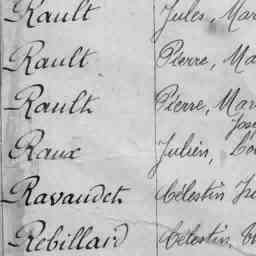 Rault Jules, Mar
Rault Pierre, Ma
Rault Pierre, Mar
Jose
Raux Julien,
Ravaudet Célestin
Rebillard Célestin,